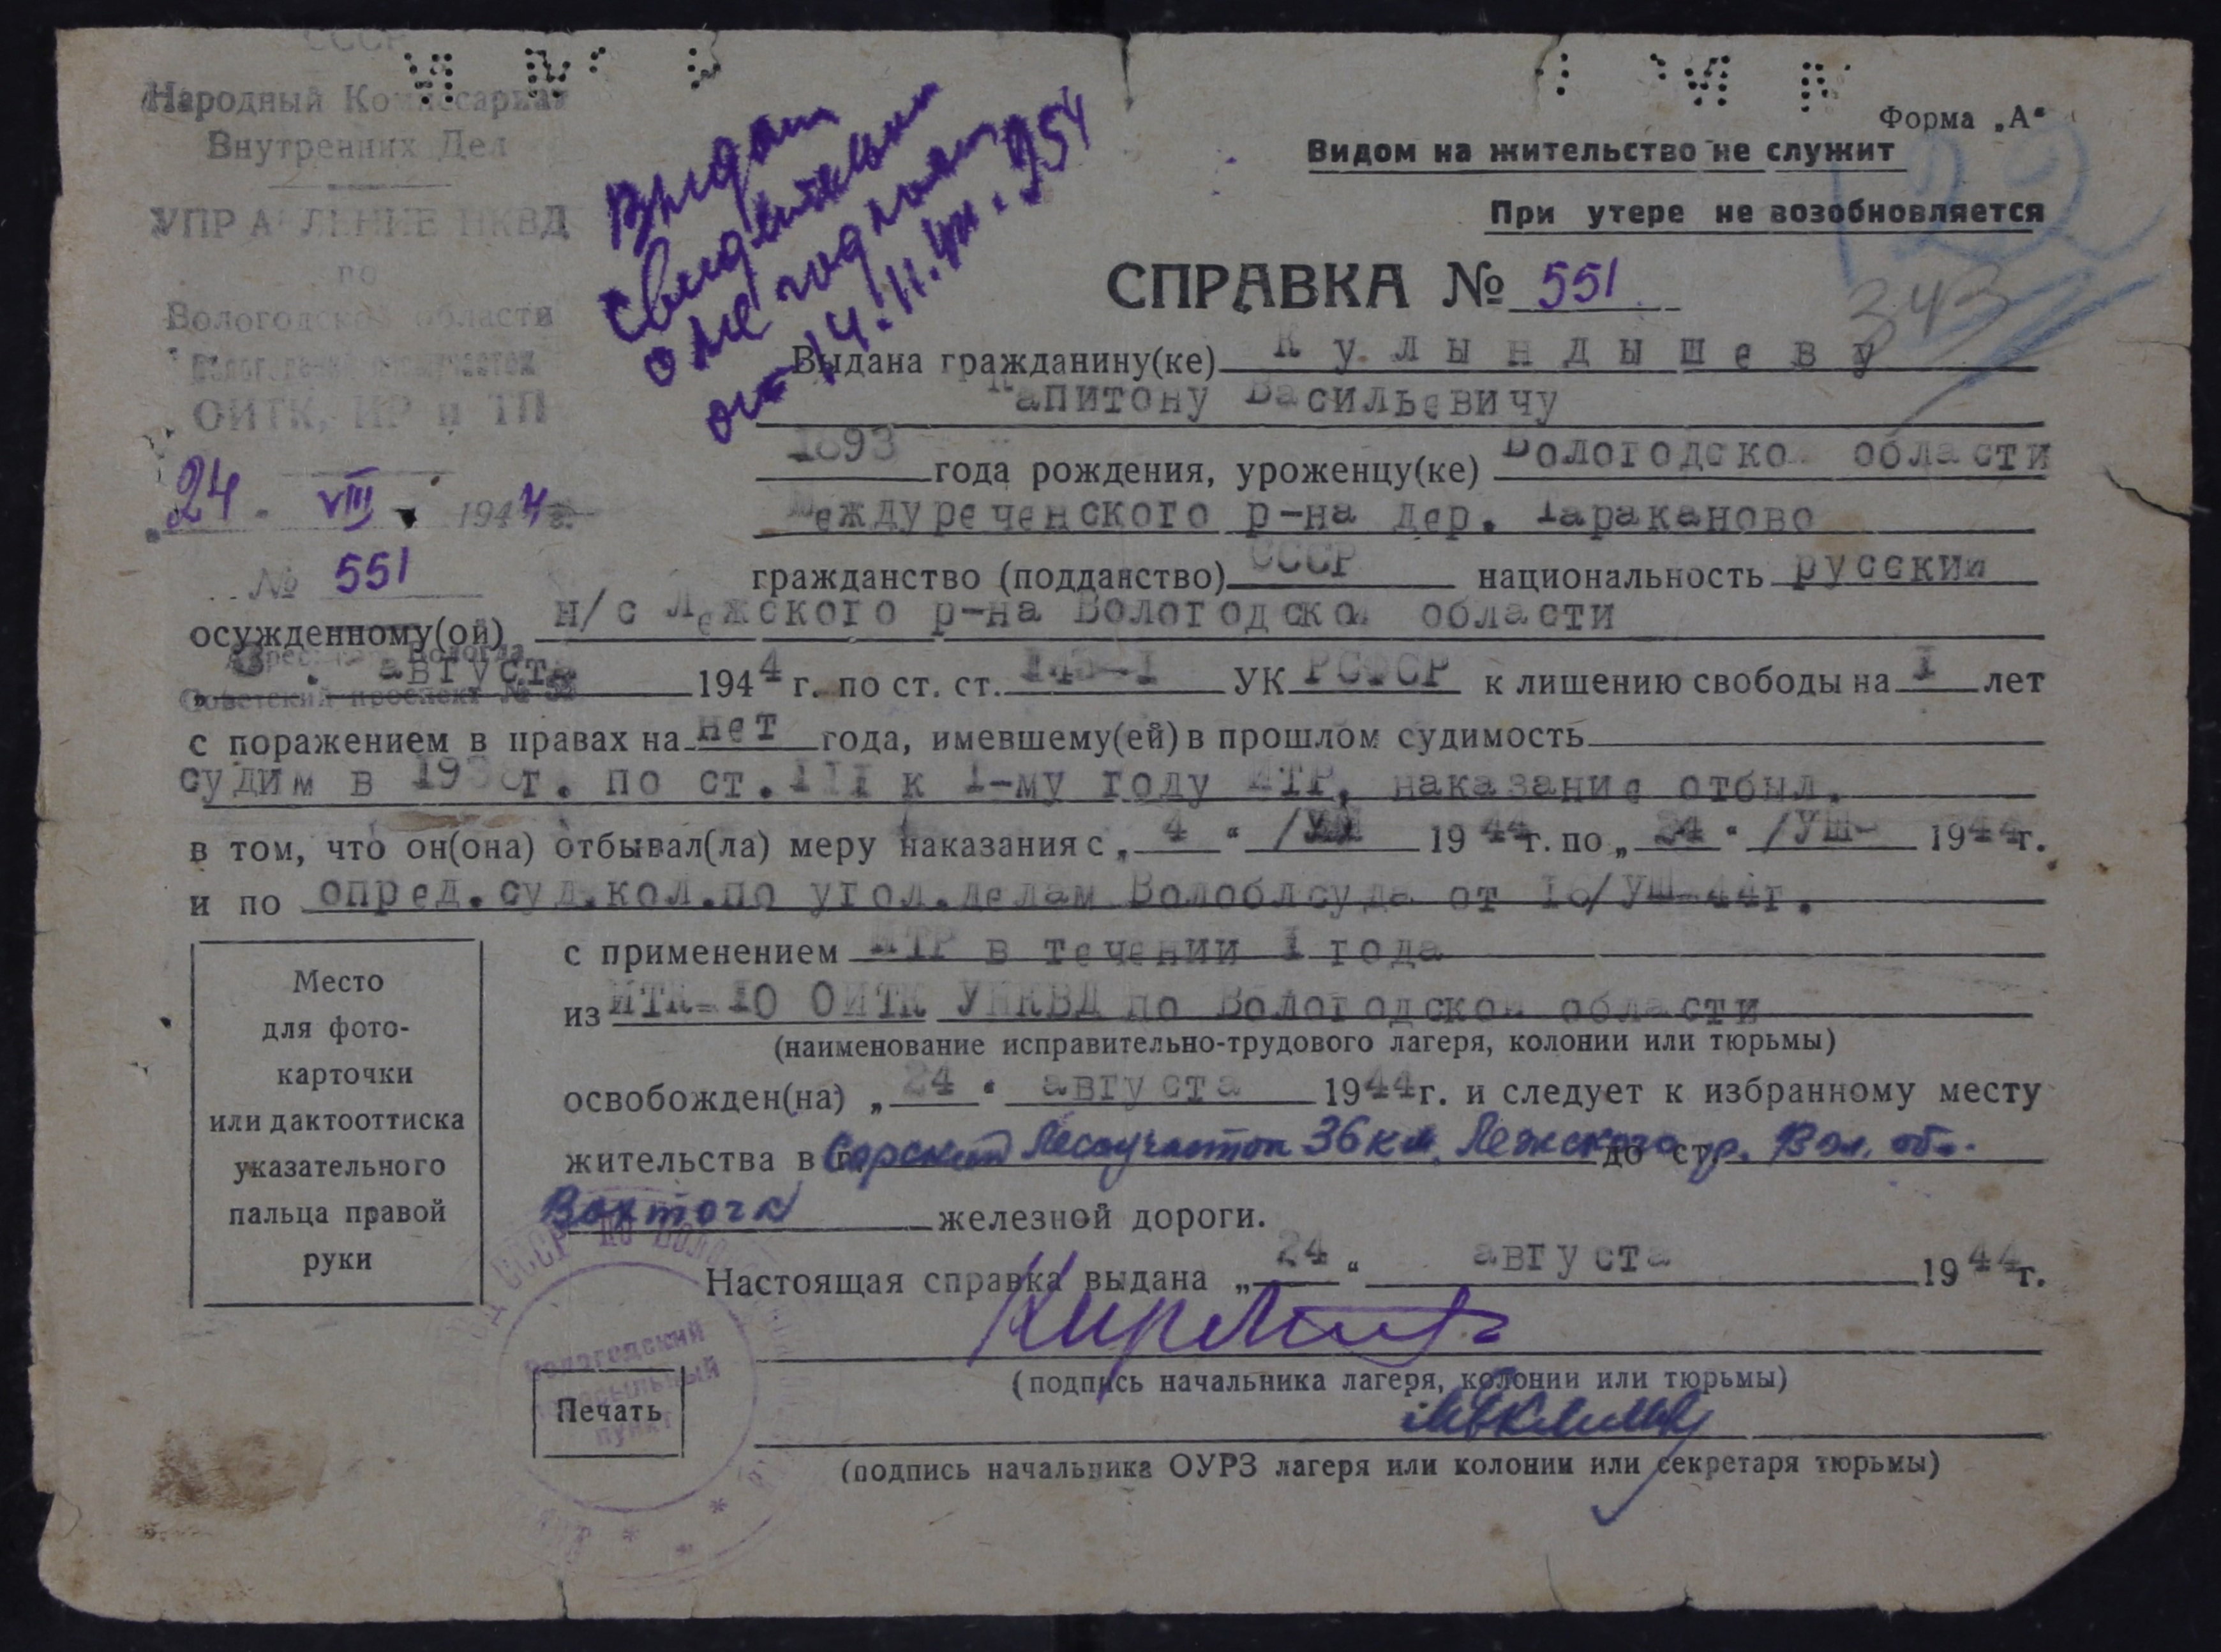 СССР
Народный Комиссариат
Внутренних Дел
УПРАВЛЕНИЕ НКВД
по
Вологодской области
ОИТК, ИР и ТП
24 VIII 1944 г.
№ 551
Адрес: Вологда
Советский проспект №
Выдат
свидетельст
о не годност
от 14.11.954
Форма „А“
Видом на жительство не служит
При утере не возобновляется
22
343
СПРАВКА № 551
Выдана гражданину(ке) Кулындышеву
Капитону Васильевичу
1893 года рождения, уроженцу(ке) Вологодской области
Междуреченского р-на дер. Тараканово
гражданство (подданство) СССР национальность русский
осужденному(ой) н/с Лежского р-на Вологодской области
августа 1944 г. по ст. ст. 145-I УК РСФСР к лишению свободы на I лет
с поражением в правах на нет года, имевшему(ей) в прошлом судимость
судим в г. по ст. III к 1-му году ИТР, наказание отбыл.
в том, что он(она) отбывал(ла) меру наказания с „ 4 “ 1944г. по „ 24 “ /УШ- 1944г.
и по опред.суд.кол.по угол.делам Волоблсуда от 16/УШ-44г.
с применением ИТР в течении I года
из ИТК-10 ОИТК УНКВД по Вологодской области
(наименование исправительно-трудового лагеря, колонии или тюрьмы)
освобожден(на) „ 24 “ августа 1944г. и следует к избранному месту
жительства в г. Лесоучасток 36 км. Лежского р. Вол. обл. до ст.
Вохтога железной дороги.
Настоящая справка выдана „ 24 “ августа 1944г.
(подпись начальника лагеря, колонии или тюрьмы)
(подпись начальника ОУРЗ лагеря или колонии или секретаря тюрьмы)
Место
для фото-
карточки
или дактооттиска
указательного
пальца правой
руки
Вологодский
пересыльный
пункт
Печать